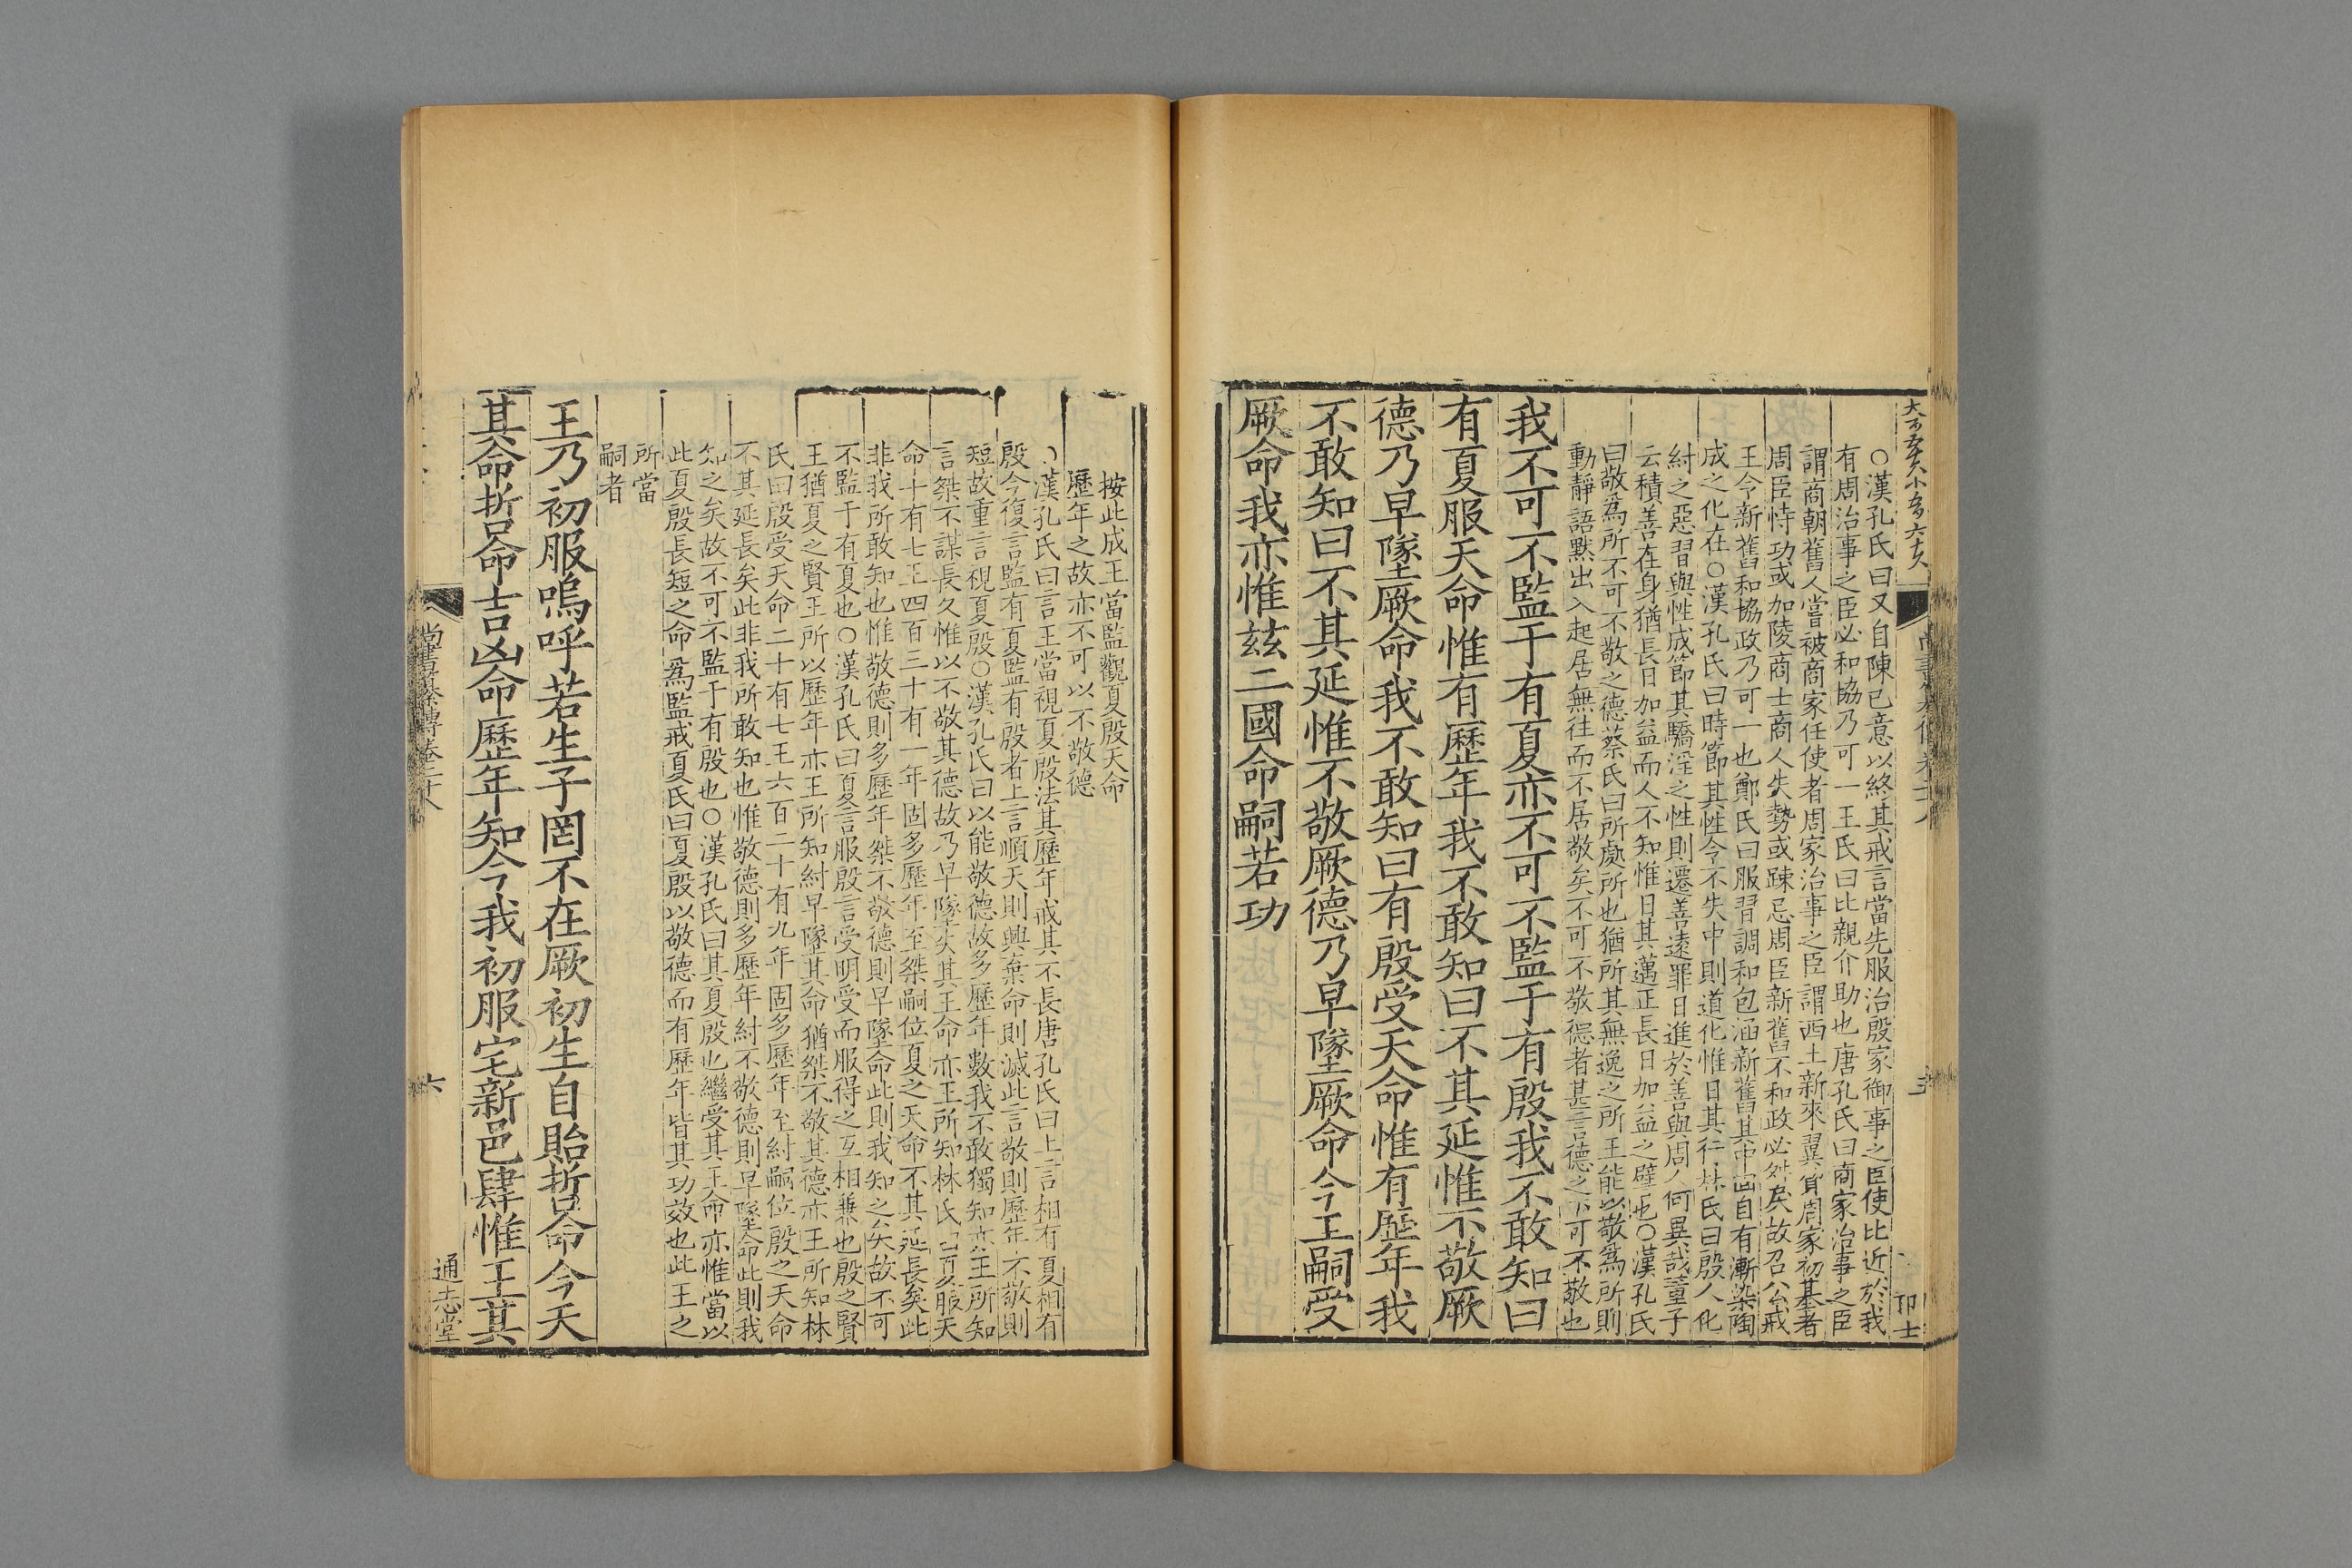 ○漢孔氏曰又自陳己意以終其戒言當先服治殷家御事之臣使比近於我
有周治事之臣必和協乃可一王氏曰比親介助也唐孔氏曰商家治事之臣
謂商朝舊人嘗被商家任使者周家治事之臣謂西土新來翼周家初基者
周臣恃功或加陵商士商人失勢或踈忌周臣新舊不和政必矣故召公戒
王令新舊和協政乃可一也鄭氏曰服習調和包涵新舊其中自有漸染陶
成之化在○漢孔氏曰時節其性令不失中則道化惟日其行林氏曰殷人化
紂之惡習與性成節其驕淫之性則遷善遠罪日進於善與周人何異哉董子
云積善在身猶長日加益而人不知惟日其邁正長日加益之也○漢孔氏
曰敬爲所不可不敬之德蔡氏曰所處所也猶所其無逸之所王能以敬爲所則
動靜語默出入起居無往而不居敬矣不可不敬德者甚言德之不可不敬也
我不可不監于有夏亦不可不監于有殷我不敢知曰
有夏服天命惟有歷年我不敢知曰不其延惟不敬厥
德乃早墜厥命我不敢知曰有殷受天命惟有歷年我
不敢知曰不其延惟不敬厥德乃早墜厥命今王嗣受
厥命我亦惟茲二國命嗣若功
按此成王當監觀夏殷天命
歷年之故亦不可以不敬德
○漢孔氏曰言王當視夏殷法其歷年戒其不長唐孔氏曰上言相有夏相有
殷今復言監有夏監有殷者上言順天則興棄命則滅此言敬則歷年不敬則
短故重言視夏殷○漢孔氏曰以能敬德故多歷年數我不敢獨知亦王所知
言桀不謀長久惟以不敬其德故乃早墜失其王命亦王所知林氏曰夏服天
命十有七王四百三十有一年固多歷年至桀嗣位夏之天命不其延長矣此
非我所敢知也惟敬德則多歷年桀不敬德則早墜命此則我知之矣故不可
不監于有夏也○漢孔氏曰夏言服殷言受明受而服得之互相兼也殷之賢
王猶夏之賢王所以歷年亦王所知紂早墜其命猶桀不敬其德亦王所知林
氏曰殷受天命二十有七王六百二十有九年固多歷年至紂嗣位殷之天命
不其延長矣此非我所敢知也惟敬德則多歷年紂不敬德則早墜命此則我
知之矣故不可不監于有殷也○漢孔氏曰其夏殷也繼受其王命亦惟當以
此夏殷長短之命爲監戒夏氏曰夏殷以敬德而有歷年皆其功效也此王之
所當
嗣者
王乃初服嗚呼若生子罔不在厥初生自貽哲命今天
其命哲命吉凶命歷年知今我初服宅新邑肆惟王其
尚書纂傳卷二十八
六
通志堂